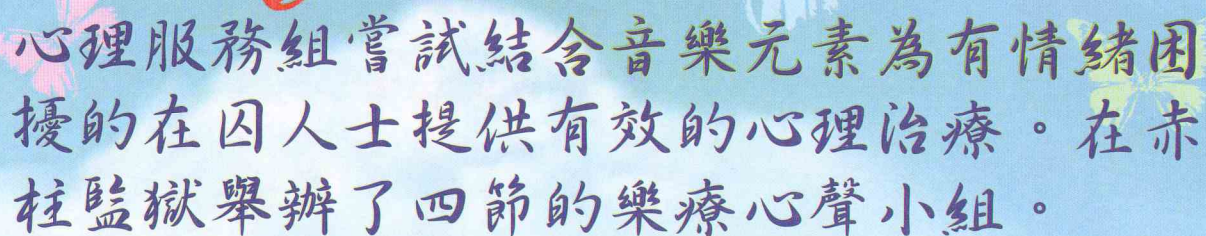 心理服務組嘗試結合音樂元素為有情緒困
擾的在囚人士提供有效的心理治療。在赤
柱監獄舉辦了四節的樂療心聲小組。